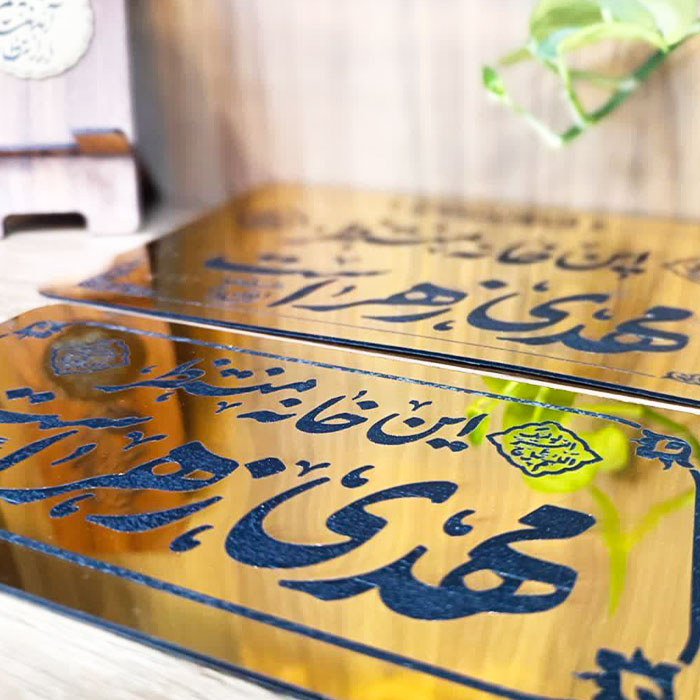 این خانه منتظر
مهدی زهراست
این خانه منتظر
مهدی زهراست